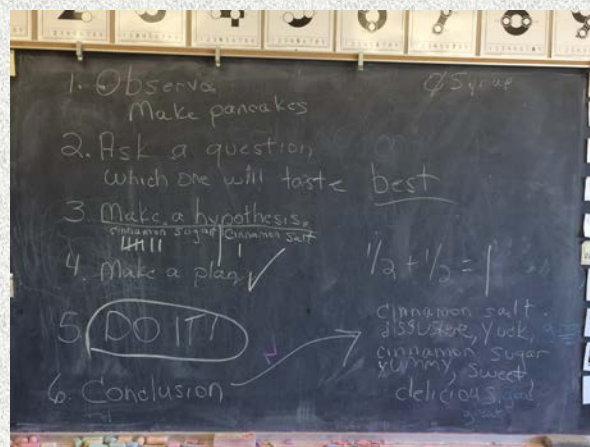 1. Observe
Make pancakes
Ø Syrup
2. Ask a question
Which one will taste best
3. Make a hypothesis.
cinnamon sugar | cinnamon salt
4. Make a plan ✓
1/2 + 1/2 = 1
5. DO IT!
6. Conclusion
cinnamon salt
yuck,
cinnamon sugar
yummy, sweet
delicious,